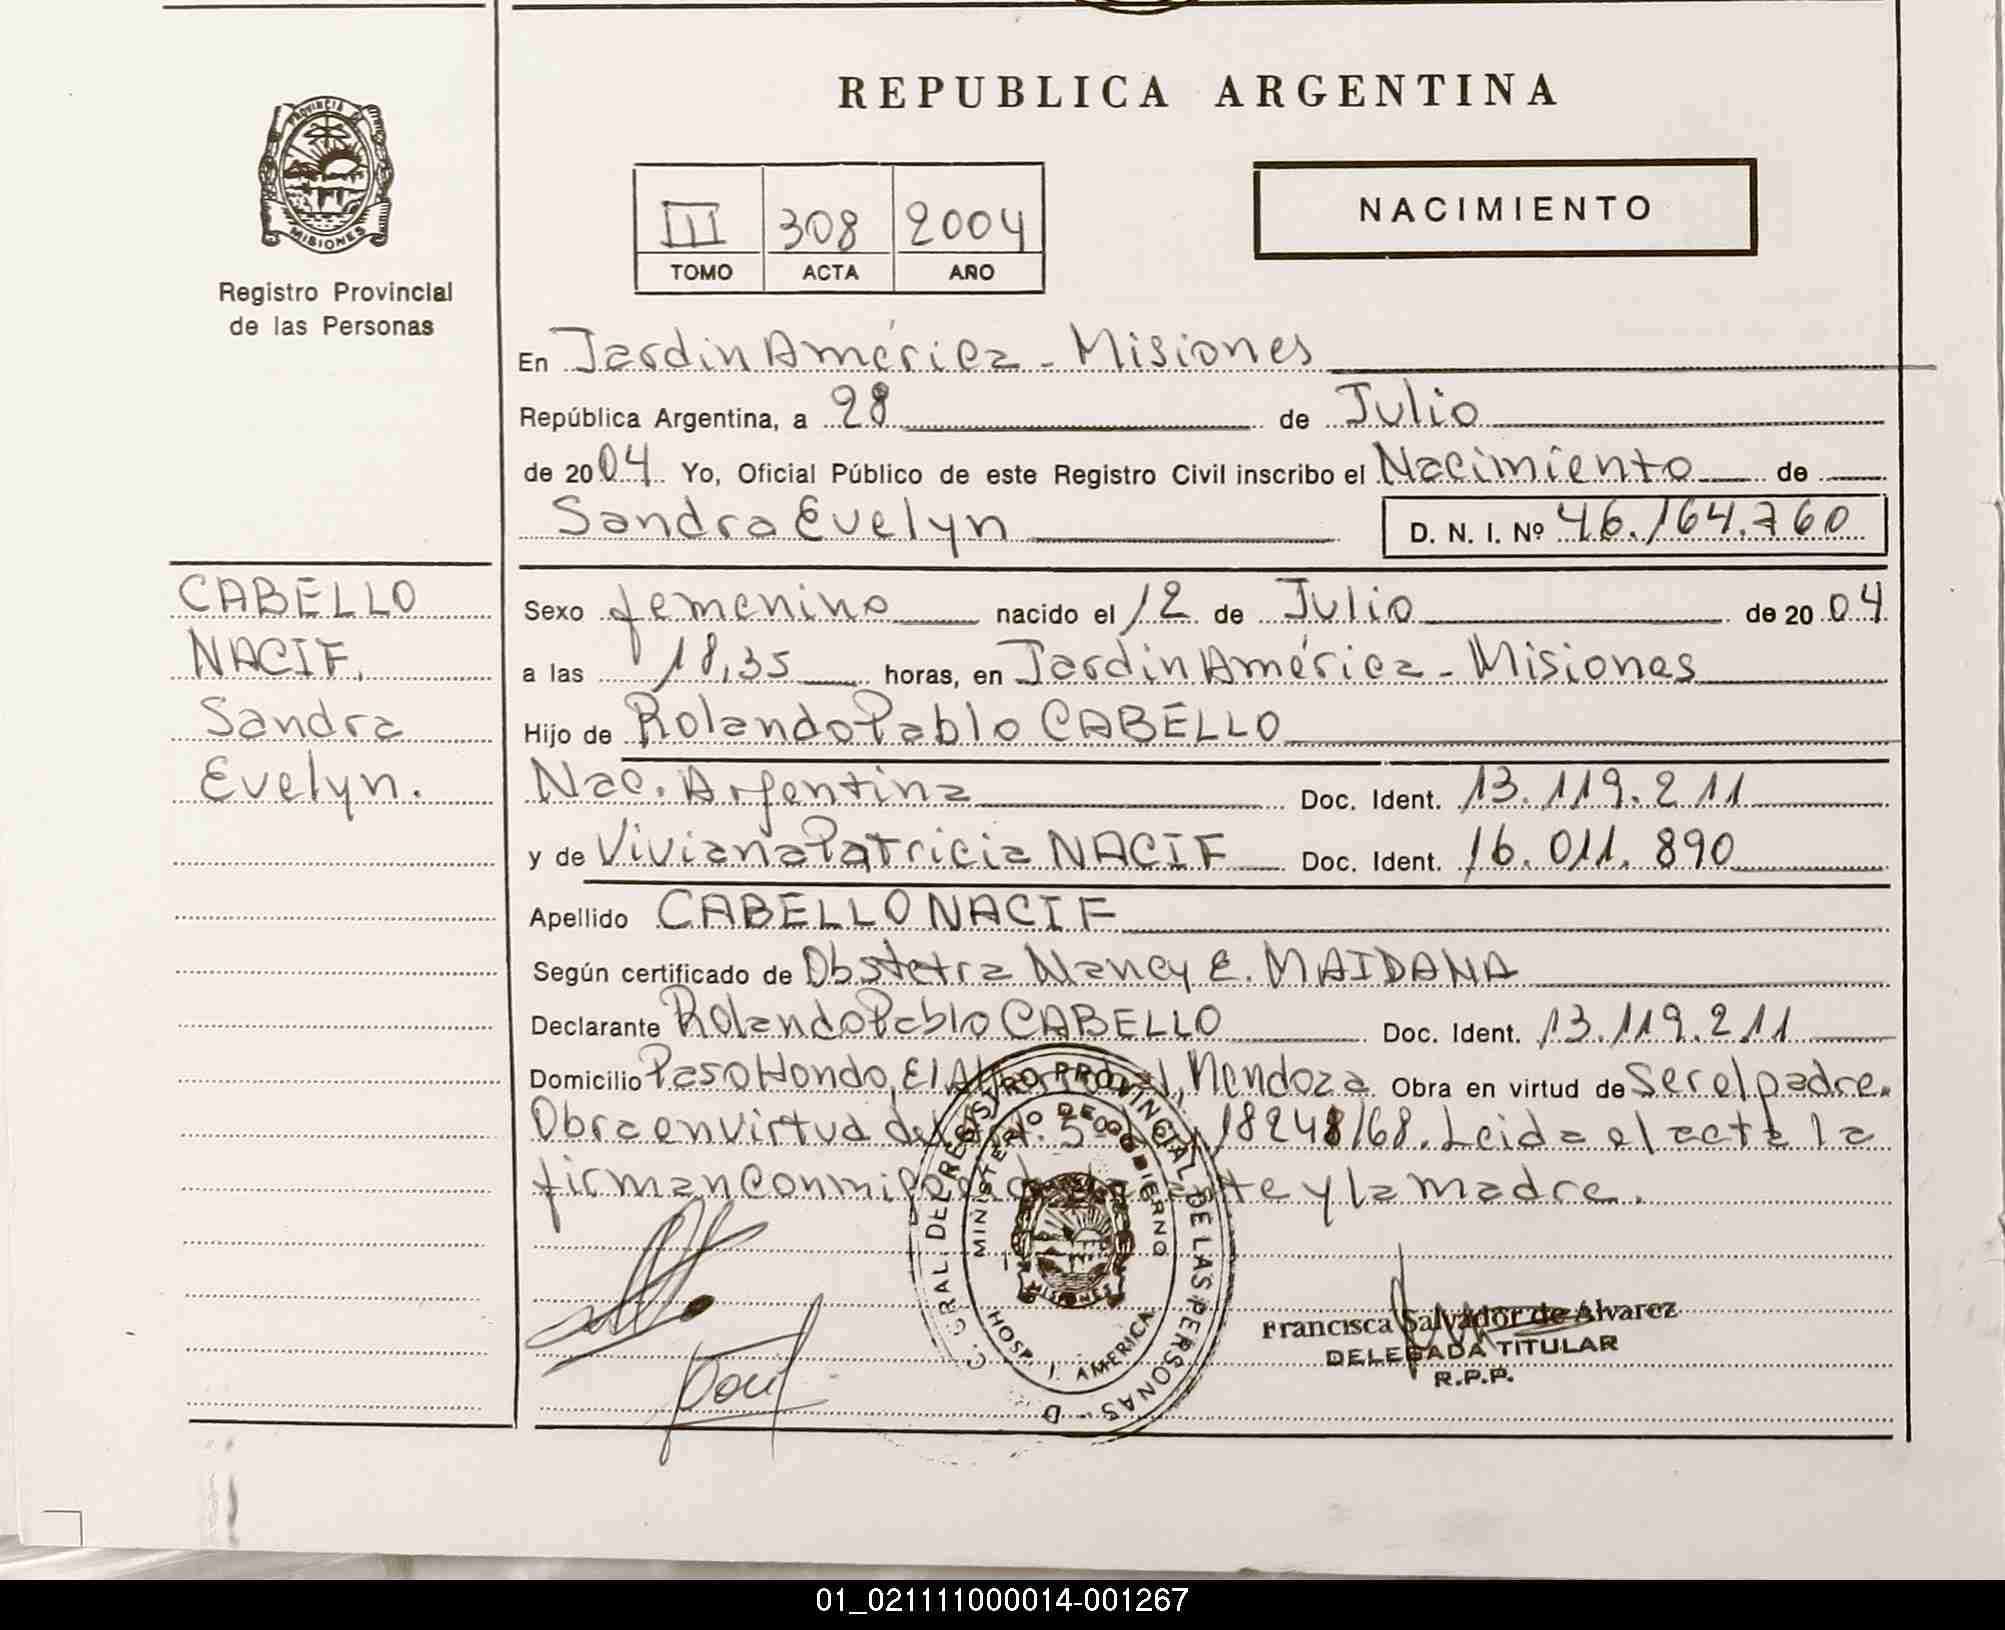 REPUBLICA ARGENTINA
PROVINCIA DE
MISIONES
Registro Provincial
de las Personas
III 308 2004
TOMO ACTA AÑO
NACIMIENTO
En Jardin América - Misiones
República Argentina, a 28 de Julio
de 2004 Yo, Oficial Público de este Registro Civil inscribo el Nacimiento de
Sandra Evelyn D. N. I. Nº 46.164.760
CABELLO
NACIF,
Sandra
Evelyn.
Sexo femenino nacido el 12 de Julio de 2004
a las 18,35 horas, en Jardin América - Misiones
Hijo de Rolando Pablo CABELLO
Nac. Argentina Doc. Ident. 13.119.211
y de Viviana Patricia NACIF Doc. Ident. 16.011.890
Apellido CABELLO NACIF
Según certificado de Obstetra Nancy E. MAIDANA
Declarante Rolando Pablo CABELLO Doc. Ident. 13.119.211
Domicilio Paso Hondo, El Mendoza Obra en virtud de Ser el padre.
Obra en virtud del Art. 5º 18248/68. Leida el acta la
firman conmigo el y la madre.
C. GRAL. DEL REGISTRO PROVINCIAL DE LAS PERSONAS - D
MINISTERIO DE GOBIERNO
MISIONES
HOSP. J. AMERICA
Francisca Salvador de Alvarez
DELEGADA TITULAR
R.P.P.
01_021111000014-001267